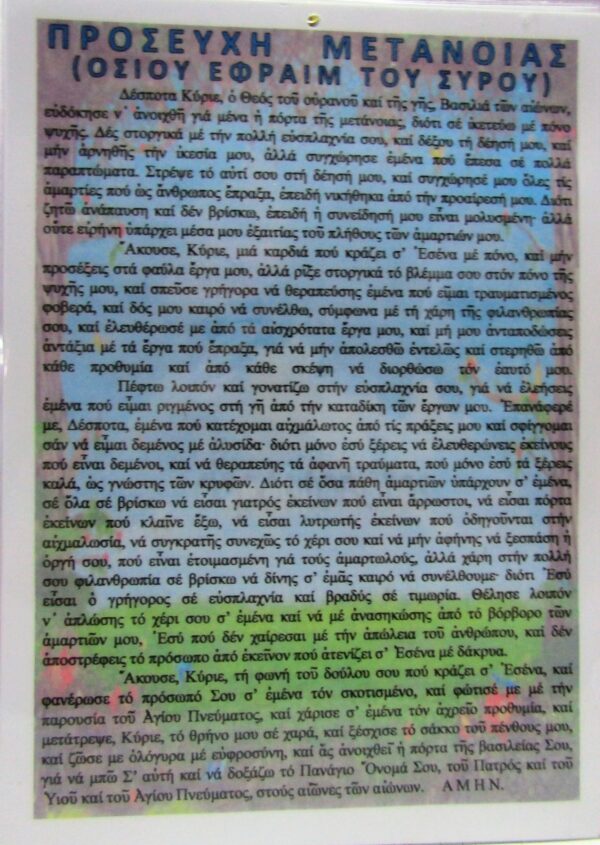 ΠΡΟΣΕΥΧΗ ΜΕΤΑΝΟΙΑΣ
(ΟΣΙΟΥ ΕΦΡΑΙΜ ΤΟΥ ΣΥΡΟΥ)
Δέσποτα Κύριε, ὁ Θεός τοῦ οὐρανοῦ καί τῆς γῆς, Βασιλιά τῶν αἰώνων,
εὐδόκησε ν᾿ ἀνοιχθῆ γιά μένα ἡ πόρτα τῆς μετάνοιας, διότι σέ ἱκετεύω μέ πόνο
ψυχῆς. Δές στοργικά μέ τήν πολλή εὐσπλαχνία σου, καί δέξου τή δέησή μου, καί
μήν ἀρνηθῆς τήν ἱκεσία μου, ἀλλά συγχώρησε ἐμένα πού ἔπεσα σέ πολλά
παραπτώματα. Στρέψε τό αὐτί σου στή δέησή μου, καί συγχώρησέ μου ὅλες τίς
ἁμαρτίες πού ὡς ἄνθρωπος ἔπραξα, ἐπειδή νικήθηκα ἀπό τήν προαίρεσή μου. Διότι
ζητῶ ἀνάπαυση καί δέν βρίσκω, ἐπειδή ἡ συνείδησή μου εἶναι μολυσμένη· ἀλλά
οὔτε εἰρήνη ὑπάρχει μέσα μου ἐξαιτίας τοῦ πλήθους τῶν ἁμαρτιῶν μου.
Ἄκουσε, Κύριε, μιά καρδιά πού κράζει σ᾿ Ἐσένα μέ πόνο, καί μήν
προσέξεις στά φαῦλα ἔργα μου, ἀλλά ρῖξε στοργικά τό βλέμμα σου στόν πόνο τῆς
ψυχῆς μου, καί σπεῦσε γρήγορα νά θεραπεύσης ἐμένα πού εἶμαι τραυματισμένος
φοβερά, καί δός μου καιρό νά συνέλθω, σύμφωνα μέ τή χάρη τῆς φιλανθρωπίας
σου, καί ἐλευθέρωσέ με ἀπό τά αἰσχρότατα ἔργα μου, καί μή μου ἀνταποδώσεις
ἀντάξια μέ τά ἔργα πού ἔπραξα, γιά νά μήν ἀπολεσθῶ ἐντελῶς καί στερηθῶ ἀπό
κάθε προθυμία καί ἀπό κάθε σκέψη νά διορθώσω τόν ἑαυτό μου.
Πέφτω λοιπόν καί γονατίζω στήν εὐσπλαχνία σου, γιά νά ἐλεήσεις
ἐμένα πού εἶμαι ριγμένος στή γῆ ἀπό τήν καταδίκη τῶν ἔργων μου. Ἐπανάφερέ
με, Δέσποτα, ἐμένα πού κατέχομαι αἰχμάλωτος ἀπό τίς πράξεις μου καί σφίγγομαι
σάν νά εἶμαι δεμένος μέ ἁλυσίδα· διότι μόνο ἐσύ ξέρεις νά ἐλευθερώνεις ἐκείνους
πού εἶναι δεμένοι, καί νά θεραπεύης τά ἀφανῆ τραύματα, πού μόνο ἐσύ τά ξέρεις
καλά, ὡς γνώστης τῶν κρυφῶν. Διότι σέ ὅσα πάθη ἁμαρτιῶν ὑπάρχουν σ᾿ ἐμένα,
σέ ὅλα σέ βρίσκω νά εἶσαι γιατρός ἐκείνων πού εἶναι ἄρρωστοι, νά εἶσαι πόρτα
ἐκείνων πού κλαῖνε ἔξω, νά εἶσαι λυτρωτής ἐκείνων πού ὁδηγοῦνται στήν
αἰχμαλωσία, νά συγκρατῆς συνεχῶς τό χέρι σου καί νά μήν ἀφήνης νά ξεσπάση ἡ
ὀργή σου, πού εἶναι ἑτοιμασμένη γιά τούς ἁμαρτωλούς, ἀλλά χάρη στήν πολλή
σου φιλανθρωπία σέ βρίσκω νά δίνης σ᾿ ἐμᾶς καιρό νά συνέλθουμε· διότι Ἐσύ
εἶσαι ὁ γρήγορος σέ εὐσπλαχνία καί βραδύς σέ τιμωρία. Θέλησε λοιπόν
ν᾿ ἁπλώσης τό χέρι σου σ᾿ ἐμένα καί νά μέ ἀνασηκώσης ἀπό τό βόρβορο τῶν
ἁμαρτιῶν μου, Ἐσύ πού δέν χαίρεσαι μέ τήν ἀπώλεια τοῦ ἀνθρώπου, καί δέν
ἀποστρέφεις τό πρόσωπο ἀπό ἐκεῖνον πού ἀτενίζει σ᾿ Ἐσένα μέ δάκρυα.
Ἄκουσε, Κύριε, τή φωνή τοῦ δούλου σου πού κράζει σ᾿ Ἐσένα, καί
φανέρωσε τό πρόσωπό Σου σ᾿ ἐμένα τόν σκοτισμένο, καί φώτισέ με μέ τήν
παρουσία τοῦ Ἁγίου Πνεύματος, καί χάρισε σ᾿ ἐμένα τόν ἀχρεῖο προθυμία, καί
μετάτρεψε, Κύριε, τό θρῆνο μου σέ χαρά, καί ξέσχισε τό σάκκο τοῦ πένθους μου,
καί ζῶσε με ὁλόγυρα μέ εὐφροσύνη, καί ἄς ἀνοιχθεῖ ἡ πόρτα τῆς βασιλείας Σου,
γιά νά μπῶ Σ᾿ αὐτή καί νά δοξάζω τό Πανάγιο Ὄνομά Σου, τοῦ Πατρός καί τοῦ
Υἱοῦ καί τοῦ Ἁγίου Πνεύματος, στούς αἰῶνες τῶν αἰώνων. ΑΜΗΝ.